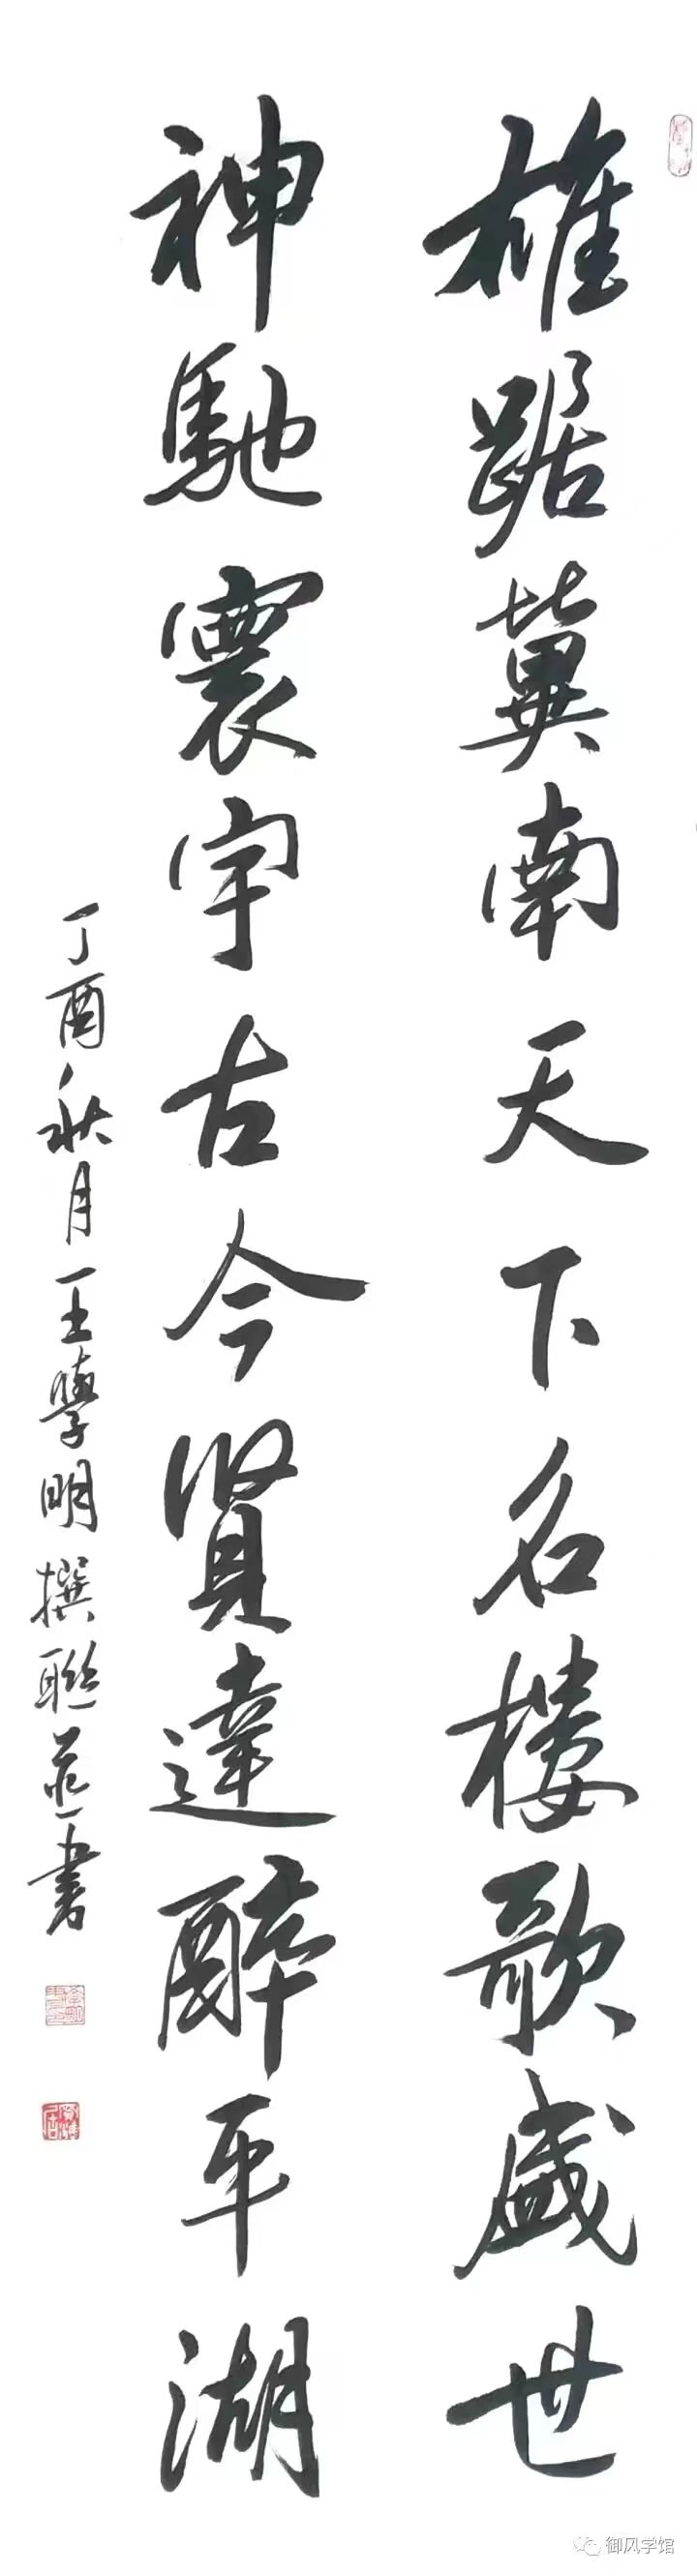 雄踞冀南天下名楼歌盛世
神馳寰宇古今賢達醉平湖
丁酉秋月王學明撰聯並書
御风学馆